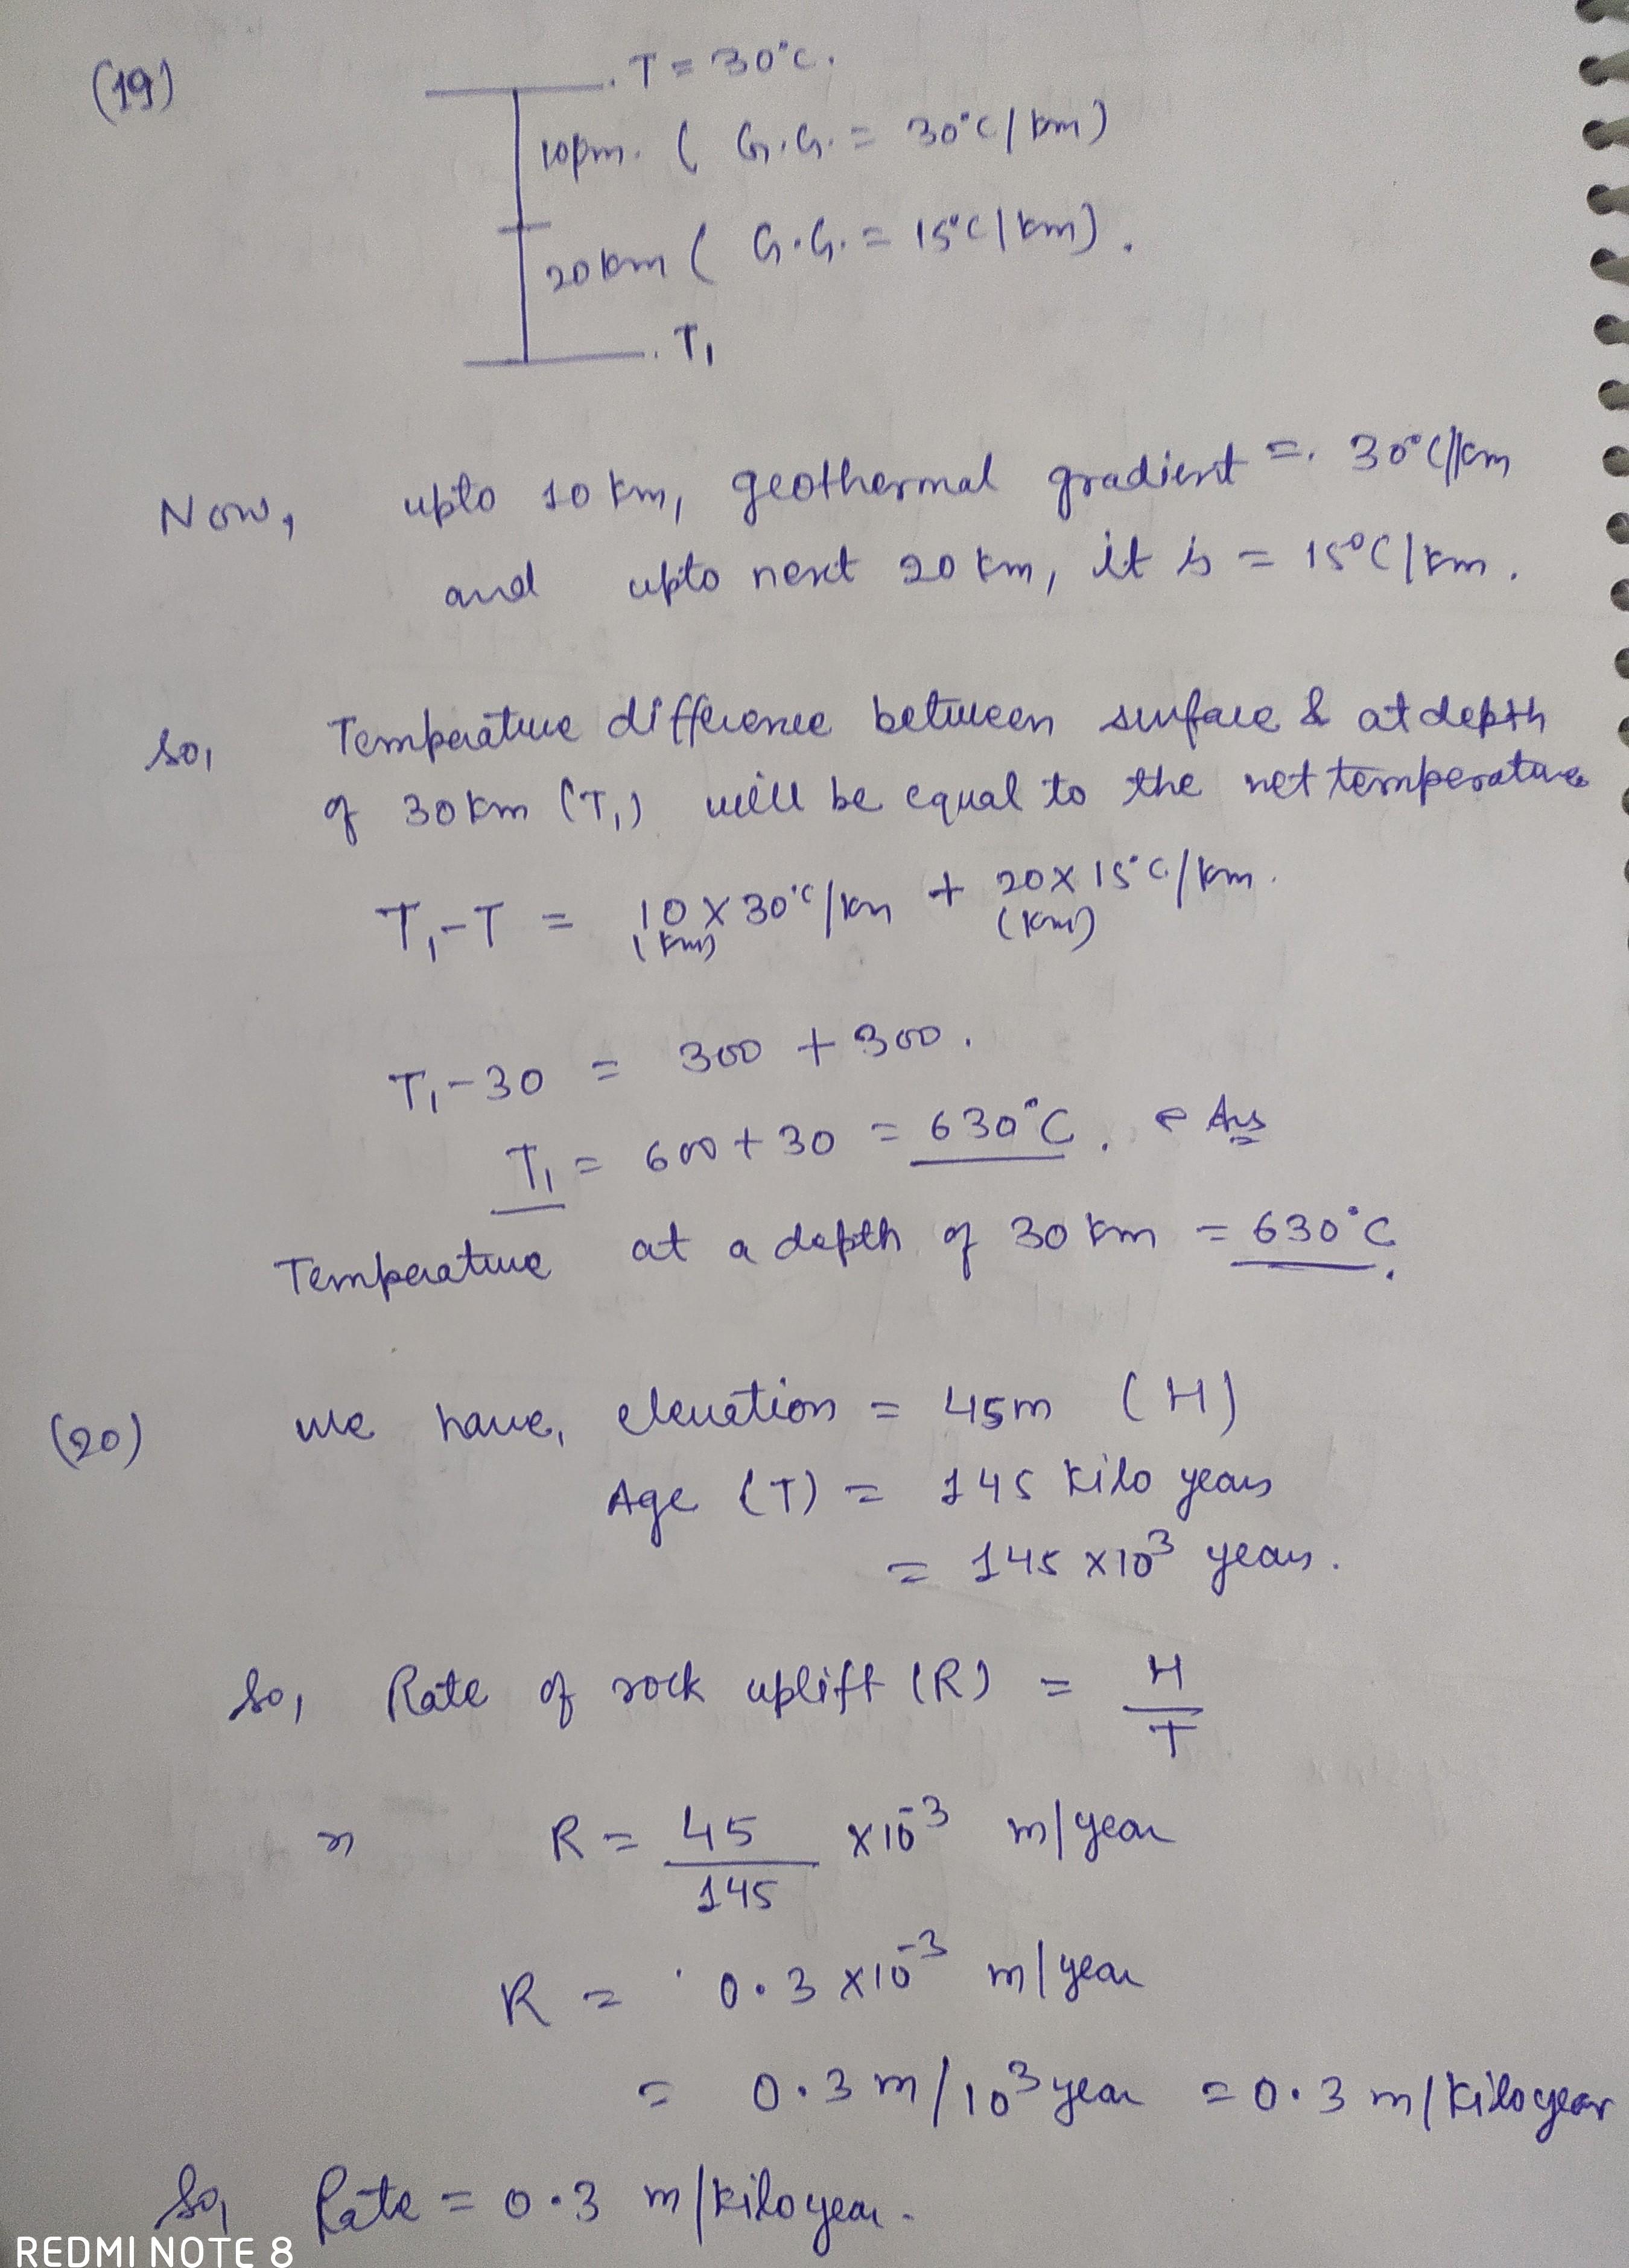 (19)
T = 30°C.
10km. ( G.G. = 30°C/km)
20km ( G.G. = 15°C/km).
T₁
Now, upto 10 km, geothermal gradient = 30°C/km
and upto next 20 km, it is = 15°C/km.
So, Temperature difference between surface & at depth
of 30km (T₁) will be equal to the net temperature
T₁-T = 10 X 30°C/km + 20 X 15°C/km.
(km) (km)
T₁-30 = 300 + 300.
T₁ = 600 + 30 = 630°C. Ans
Temperature at a depth of 30 km = 630°C.
(20) We have, elevation = 45m (H)
Age (T) = 145 Kilo years
= 145 x10³ years.
So, Rate of rock uplift (R) = H/T
R = 45/145 x10⁻³ m/year
R = 0.3 x10⁻³ m/year
= 0.3 m/10³ year = 0.3 m/Kiloyear
So, Rate = 0.3 m/kiloyear.
REDMI NOTE 8